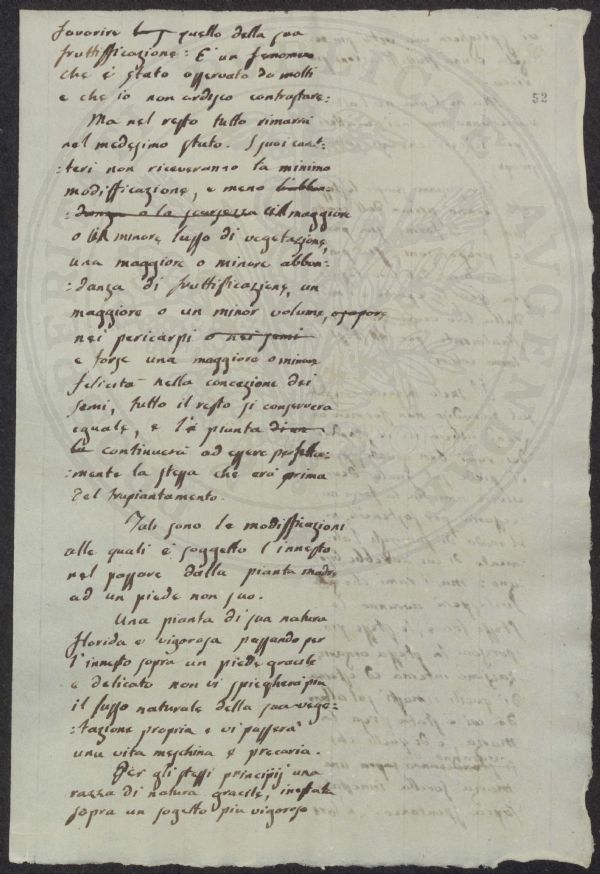 favorire quello della sua
fruttifficazione: È un fenomeno
che è stato osservato da molti
e che io non ardisco contrastare:
52
Ma nel resto tutto rimarrà
nel medesimo stato. I suoi carat:
:teri non riceveranno la minima
modifficazione, e meno l'abbon:
:danza o la scarsezza un maggiore
o un minore lusso di vegetazione,
una maggiore o minore abbon:
:danza di fruttificazione, un
maggiore o un minor volume, o sapore
nei pericarpi o nei semi
e forse una maggiore o minore
felicità nella concezione dei
semi, tutto il resto si conserverà
eguale, e la pianta
continuerà ad essere perfetta:
:mente la stessa che era prima
del trapiantamento.
Tali sono le modifficazioni
alle quali è soggetto l'innesto
nel passare dalla pianta madre
ad un piede non suo.
Una pianta di sua natura
florida e vigorosa passando per
l'innesto sopra un piede gracile
e delicato non vi spiegherà più
il lusso naturale della sua vege:
:tazione propria e vi passerà
una vita meschina e precaria.
Per gli stessi principij una
razza di natura gracile, inestata
sopra un sogetto più vigoroso